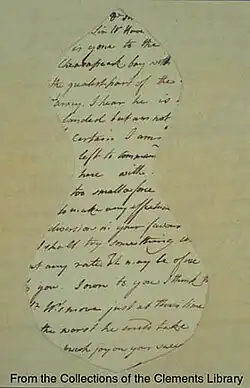 Sir W. Howe
is gone to the
Chesapeak bay with
the greatest part of the
army. I hear he is
landed but am not
certain. I am
left to command
here with
too small a force
to make any effectual
diversion in your favour
I shall try something
at any rate. It may be of use
to you. I own to you I think
Sir W's move just at this time
the worst he could take
much joy on your succ
From the Collections of the Clements Library